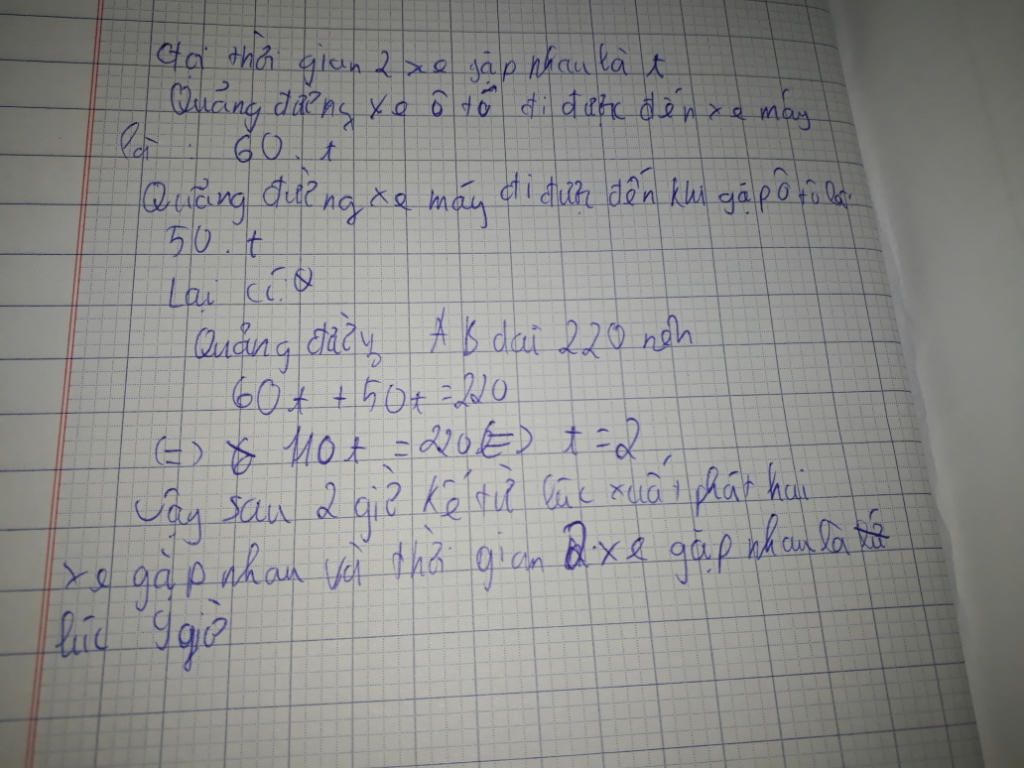 Gọi thời gian 2 xe gặp nhau là t
Quảng đường xe ô tô đi được đến xe máy
là : 60. t
Quảng đường xe máy đi được đến khi gặp ô tô là:
50. t
Lại có
Quảng đường AB dài 220 nên
60t + 50t = 220
(=) 110t = 220 (=) t = 2
Vậy sau 2 giờ kể từ lúc xuất phát hai
xe gặp nhau và thời gian 2 xe gặp nhau là
lúc 9 giờ